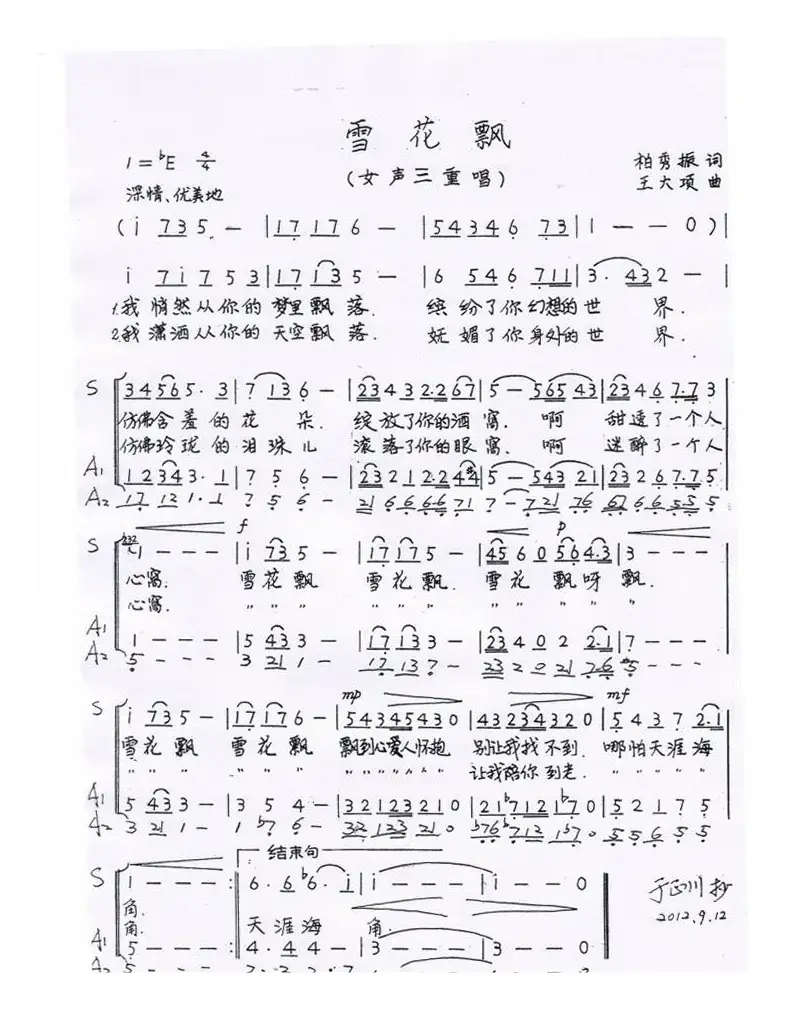 雪花飘
1=♭E 4/4
（女声三重唱）
柏秀振 词
王大项 曲
深情、优美地
(i 7 3 5 - | 1 7 1 7 6 - | 5 4 3 4 6 7 3 | 1 - - 0 ) |
i 7 i 7 5 3 | 1 7 1 3 5 - | 6 5 4 6 7 1 1 | 3. 4 3 2 - |
1.我悄然从你的梦里飘落. 缤纷了你幻想的世界.
2.我潇洒从你的天空飘落. 妩媚了你身外的世界.
S 3 4 5 6 5. 3 | 7 1 3 6 - | 2 3 4 3 2.2 6 7 | 5 - 5 6 5 4 3 | 2 3 4 6 7.7 3
仿佛含羞的花朵. 绽放了你的酒窝. 啊 甜透了一个人
仿佛玲珑的泪珠儿 滚落了你的眼窝. 啊 迷醉了一个人
A1 1 2 3 4 3. 1 | 7 5 6 - | 2 3 2 1 2.2 4 #4 | 5 - 5 4 3 2 1 | 2 3 2 6 7.7 5
A2 1 7 1 2 1. 1 7 5 6 - 2 1 6 6 6.6 7 1 7 - 7 2 1 7 6 6 7 6 6 5.5 5
f p
S 2 3 2 1 - - - | i 7 3 5 - | 1 7 1 7 5 - | 4 5 6 0 5 6 4.3 | 3 - - -
心窝. 雪花飘 雪花飘. 雪花飘呀飘.
心窝. 〃 〃 〃 〃 〃 〃 〃 〃 〃 〃 〃
A1 1 - - - | 5 4 3 3 - | 1 7 1 3 3 - | 2 3 4 0 2 2.1 | 7 - - -
A2 5 - - - 3 2 1 1 - 1 7 1 3 7 - 2 3 2 0 2 1 7.6 5 - - -
mp mf
S i 7 3 5 - | 1 7 1 7 6 - | 5 4 3 4 5 4 3 0 | 4 3 2 3 4 3 2 0 | 5 4 3 7 2.1
雪花飘 雪花飘 飘到心爱人怀抱 别让我找不到. 哪怕天涯海
〃 〃 〃 〃 〃 〃 〃〃〃〃〃〃〃 让我陪你到老. 〃 〃 〃 〃 〃
A1 5 4 3 3 - | 3 5 4 - | 3 2 1 2 3 2 1 0 | 2 1 ♭7 1 2 1 ♭7 0 | 5 2 1 7 5
A2 3 2 1 1 - 1 ♭7 6 - 3 2 1 2 3 2 1 0 ♭7 6 ♭7 1 2 1 ♭7 0 5 5 6 5 5
结束句
S 1 - - - :| 6. 6 ♭6. i | i - - - | i - - 0 ||
角. 天涯海角.
角.
A1 5 - - - :| 4. 4 4 - | 3 - - - | 3 - - 0
A2
于正川 抄
2012.9.12